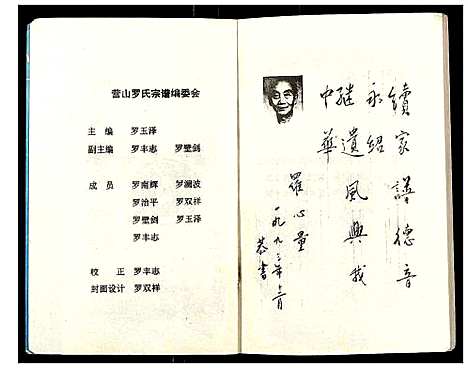 营山罗氏宗谱编委会
主编 罗玉泽
副主编 罗丰志 罗壁剑
成员 罗南辉 罗澜波
罗治平 罗双祥
罗壁剑 罗玉泽
罗丰志
校正 罗丰志
封面设计 罗双祥
续家谱德音
永绍风典我
继遗
中华
罗心量
一九九三年
恭书